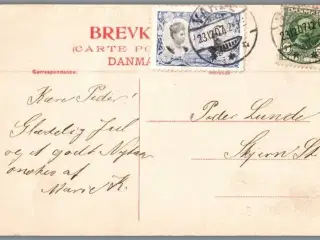 BREVK
(CARTE PO
DANMA
Correspondance.
Kære Peder!
Glædelig Jul
og et godt Nytaar
ønskes af
Marie K.
Peder Lunde
Skjern St.
23.12.07.